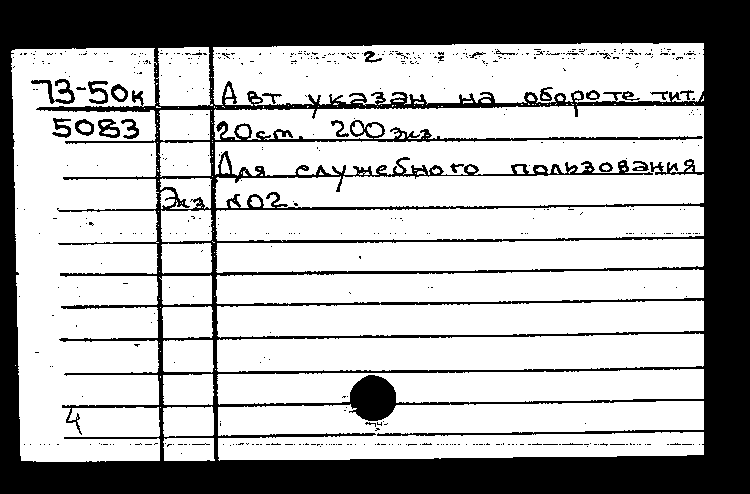 2
73-50к Авт. указан на обороте тит.
5083 20 ст. 200 экз.
Для служебного пользования
Экз. №02.
4